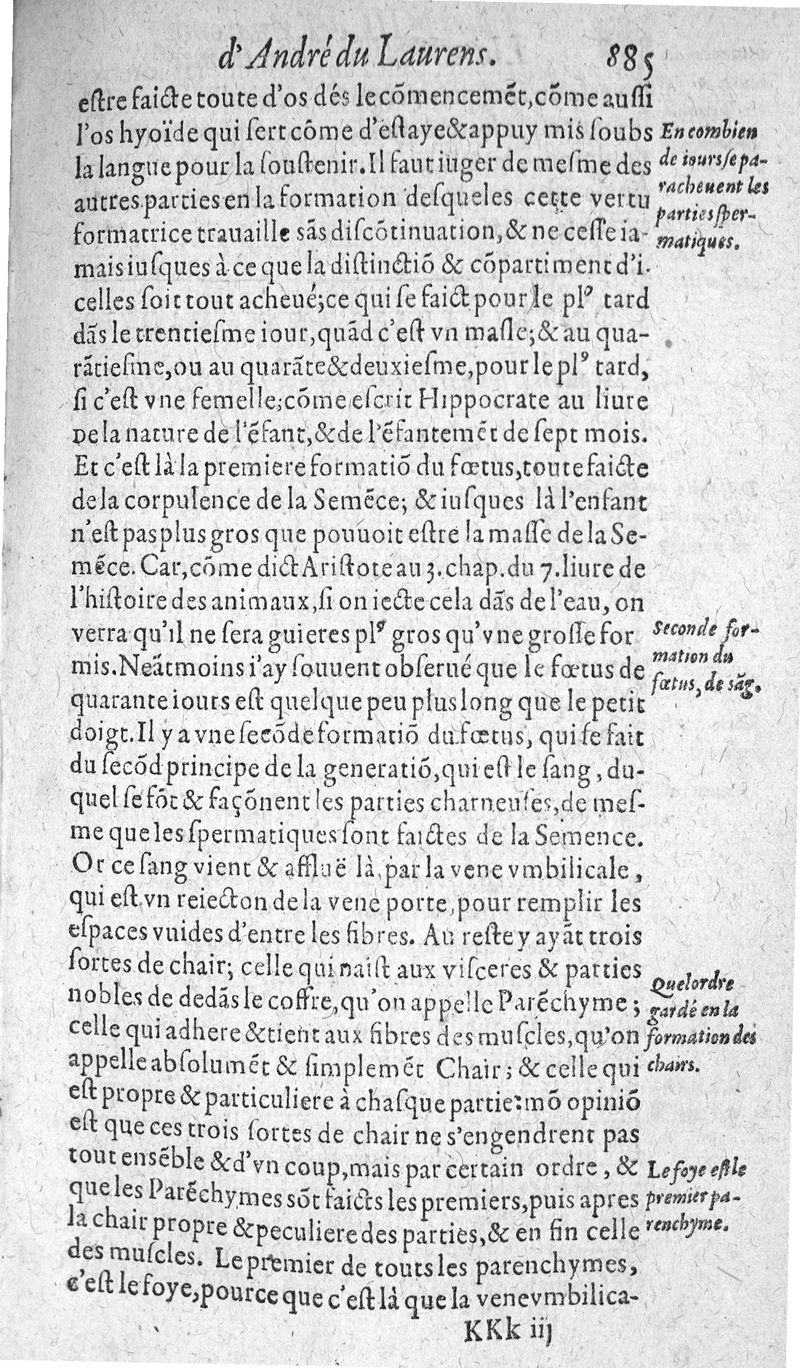 d'André du Laurens. 885
estre faicte toute d'os dés le cōmencemēt, cōme aussi
l'os hyoïde qui sert cōme d'estaye & appuy mis soubs
la langue pour la soustenir. Il faut iuger de mesme des
autres parties en la formation desqueles cette vertu
formatrice trauaille sās discōtinuation, & ne cesse ia-
mais iusques à ce que la distinctiō & cōpartiment d'i-
celles soit tout acheué; ce qui se faict pour le plꝰ tard
dās le trentiesme iour, quād c'est vn masle; & au qua-
rātiesme, ou au quarāte & deuxiesme, pour le plꝰ tard,
si c'est vne femelle; cōme escrit Hippocrate au liure
De la nature de l'ēfant, & de l'ēfantemēt de sept mois.
Et c'est là la premiere formatiō du fœtus, toute faicte
de la corpulence de la Semēce; & iusques là l'enfant
n'est pas plus gros que pouuoit estre la masse de la Se-
mēce. Car, cōme dict Aristote au 3. chap. du 7. liure de
l'histoire des animaux, si on iecte cela dās de l'eau, on
verra qu'il ne sera guieres plꝰ gros qu'vne grosse for
mis. Neātmoins i'ay souuent obserué que le fœtus de
quarante iours est quelque peu plus long que le petit
doigt. Il y a vne secōde formatiō du fœtus, qui se fait
du secōd principe de la generatiō, qui est le sang, du-
quel se fōt & façōnent les parties charneuses, de mes-
me que les spermatiques sont faictes de la Semence.
Or ce sang vient & affluë là, par la vene vmbilicale,
qui est vn reiecton de la vene porte, pour remplir les
espaces vuides d'entre les fibres. Au reste y ayāt trois
sortes de chair; celle qui naist aux visceres & parties
nobles de dedās le coffre, qu'on appelle Parēchyme;
celle qui adhere & tient aux fibres des muscles, qu'on
appelle absolumēt & simplemēt Chair; & celle qui
est propre & particuliere à chasque partie: mō opiniō
est que ces trois sortes de chair ne s'engendrent pas
tout ensēble & d'vn coup, mais par certain ordre, &
que les Parēchymes sōt faicts les premiers, puis apres
la chair propre & peculiere des parties, & en fin celle
des muscles. Le premier de touts les parenchymes,
c'est le foye, pource que c'est là que la vene vmbilica-
KKk iij
En combien
de iours se pa-
racheuent les
parties sper-
matiques.
Seconde for-
mation du
fœtus, de sāg.
Quel ordre
gardé en la
formation des
chairs.
Le foye est le
premier pa-
renchyme.